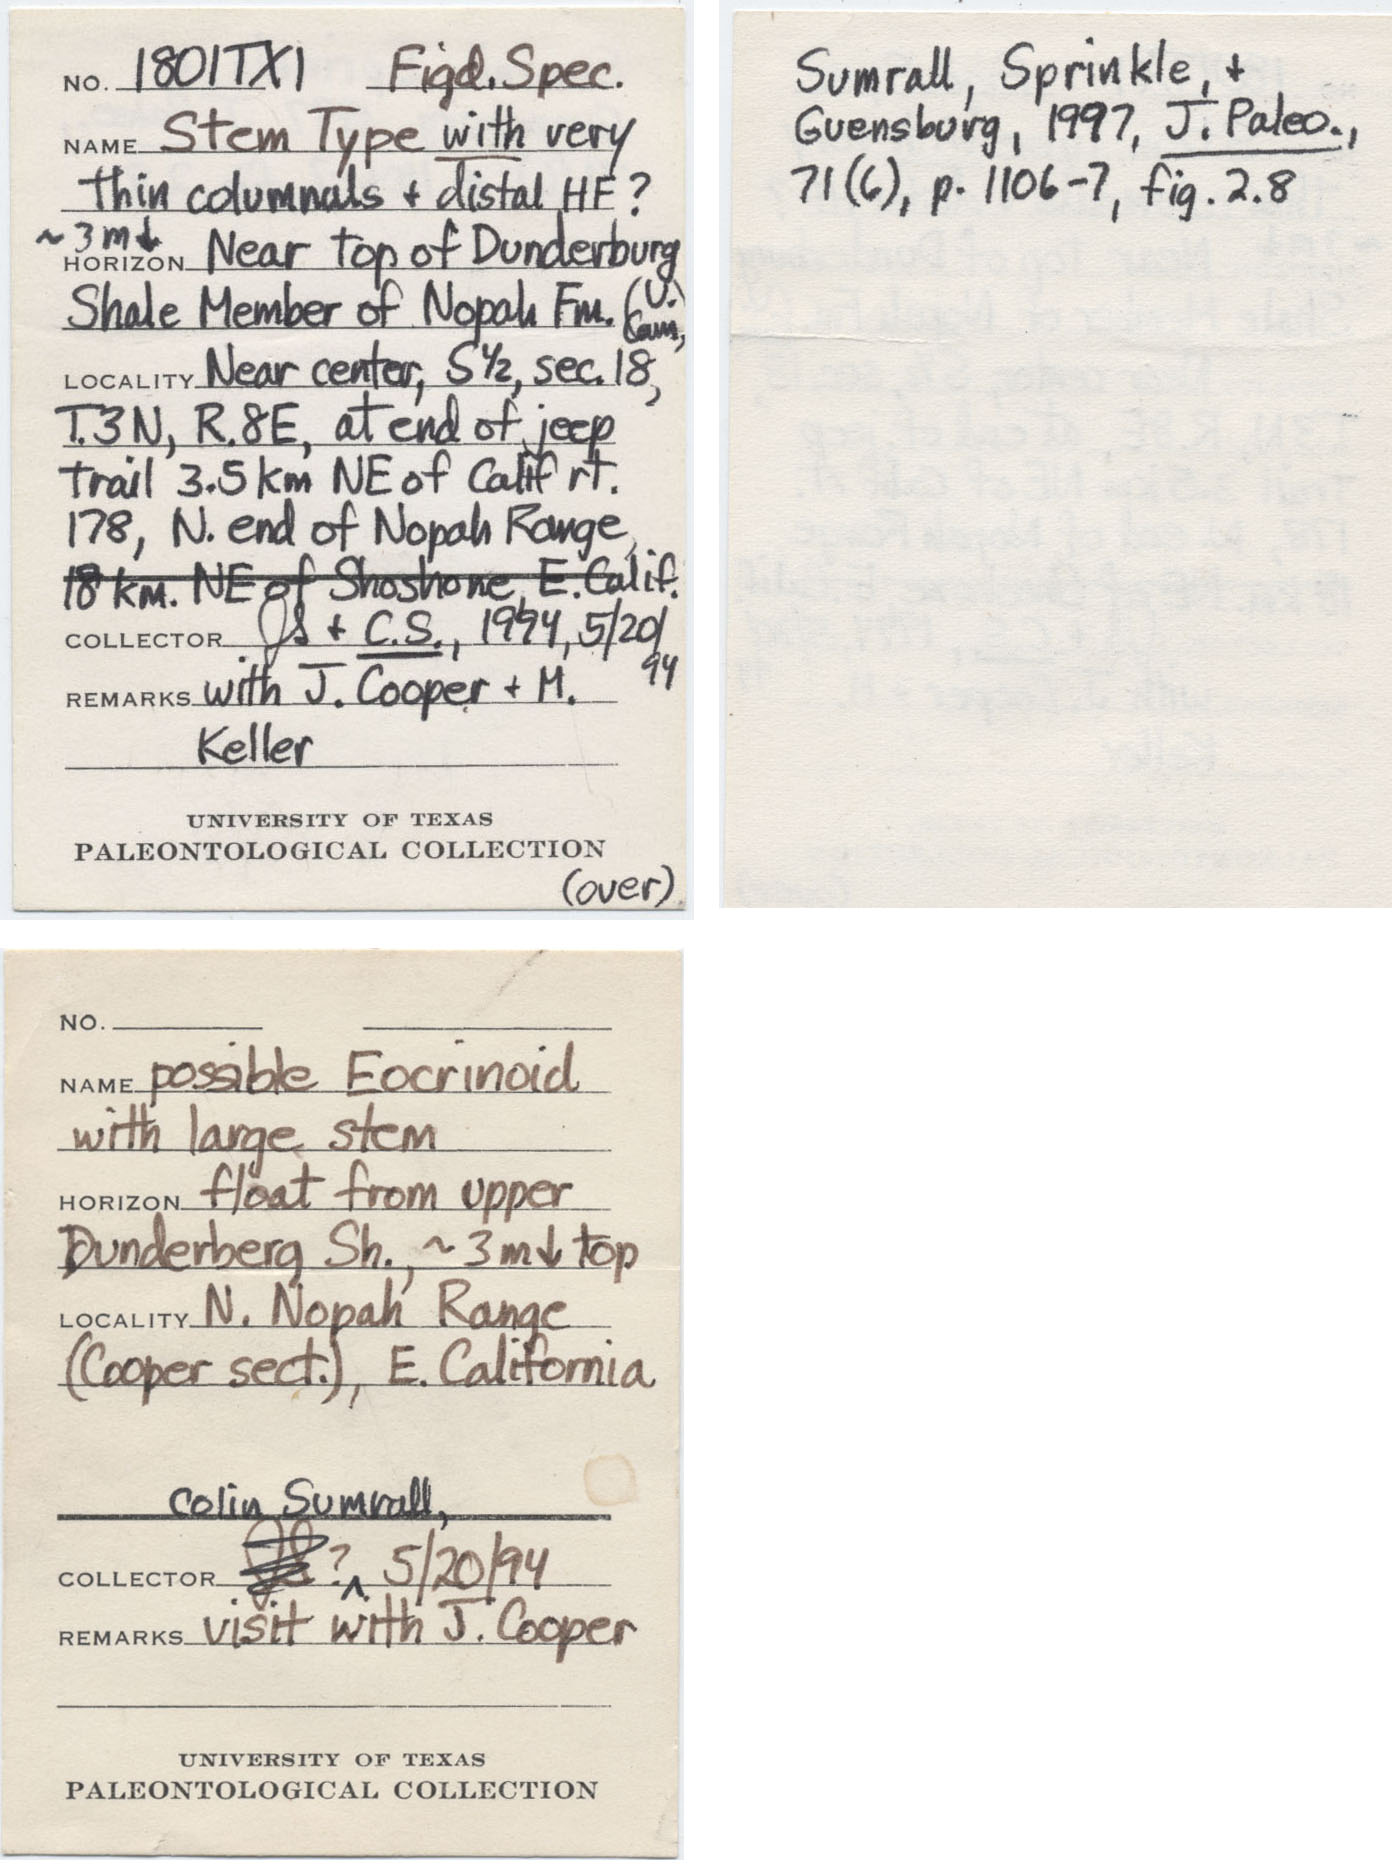 NO. 1801TX1 Figd. Spec.
NAME Stem Type with very
thin columnals + distal HF?
~3m↓
HORIZON Near top of Dunderburg
Shale Member of Nopah Fm. (U.
Cam,
LOCALITY Near center, S½, sec. 18,
T.3N, R.8E, at end of jeep
trail 3.5 km NE of Calif rt.
178, N. end of Nopah Range,
18 km. NE of Shoshone, E. Calif.
COLLECTOR JS + C.S., 1994, 5/20/
94
REMARKS with J. Cooper + M.
Keller
UNIVERSITY OF TEXAS
PALEONTOLOGICAL COLLECTION
(over)
Sumrall, Sprinkle, +
Guensburg, 1997, J. Paleo.,
71(6), p. 1106-7, fig. 2.8
NO.
NAME possible Eocrinoid
with large stem
HORIZON float from upper
Dunderberg Sh., ~3m↓ top
LOCALITY N. Nopah Range
(Cooper sect.), E. California
Colin Sumrall,
COLLECTOR JS ? ^ 5/20/94
REMARKS visit with J. Cooper
UNIVERSITY OF TEXAS
PALEONTOLOGICAL COLLECTION